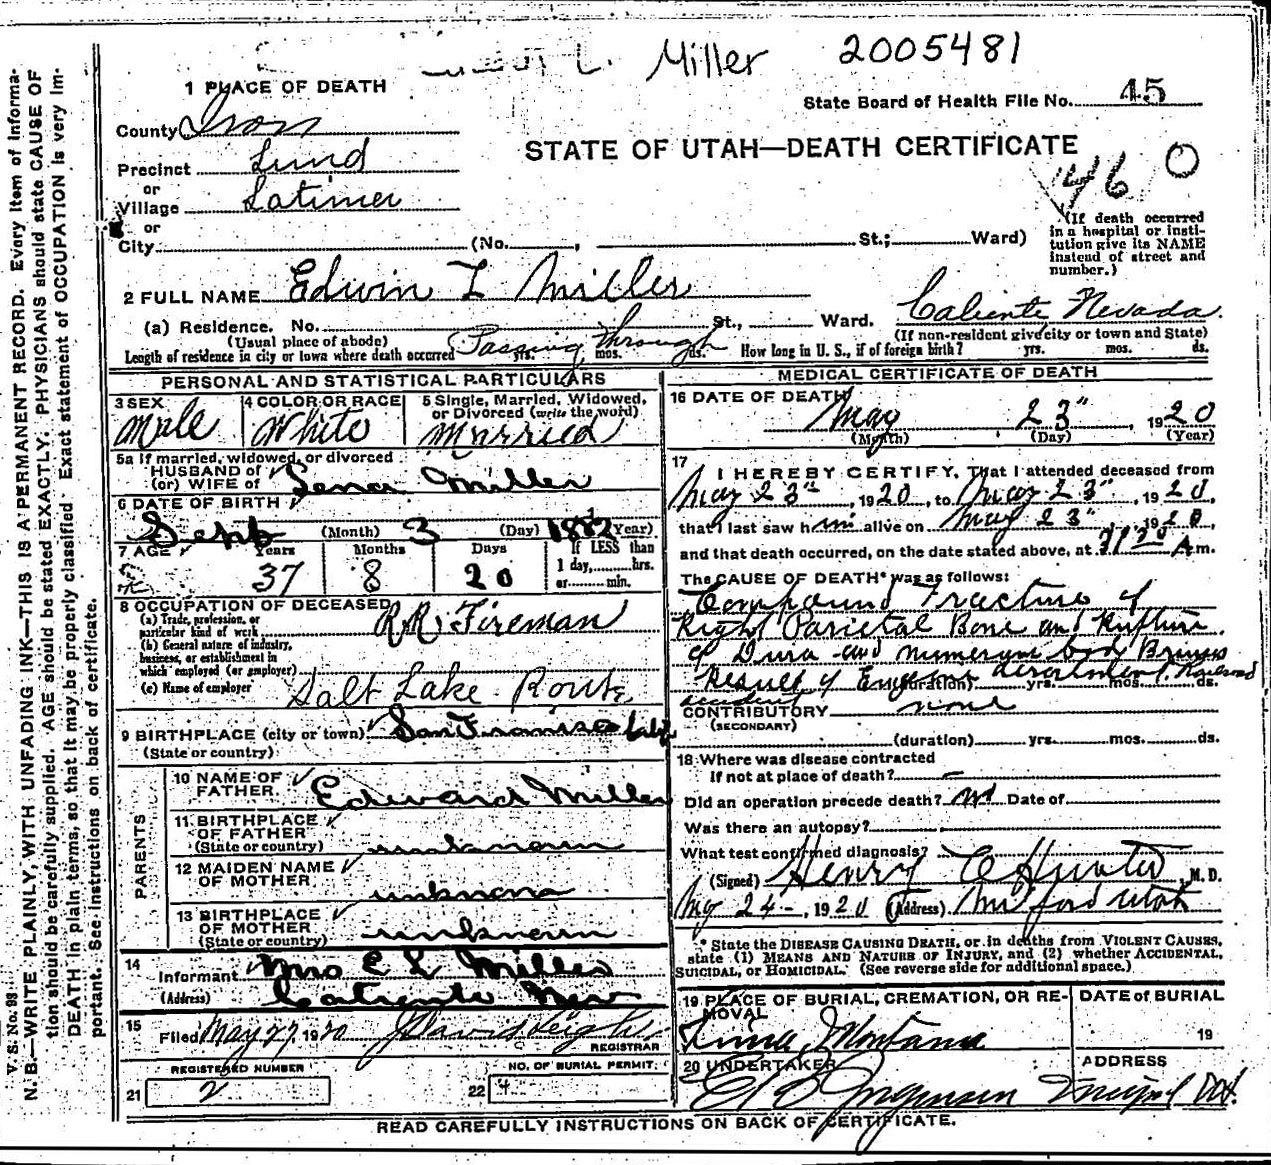 L. Miller 2005481
1 PLACE OF DEATH
State Board of Health File No. 45
County Iron
STATE OF UTAH—DEATH CERTIFICATE
Precinct Lund
or
Village Latimer
46 0
or
City (No. , St.; Ward)
(If death occurred in a hospital or institution give its NAME instead of street and number.)
2 FULL NAME Edwin L Miller
(a) Residence. No. St., Ward. Caliente Nevada.
(Usual place of abode) (If non-resident give city or town and State)
Length of residence in city or town where death occurred Passing Through yrs. mos. ds. How long in U. S., if of foreign birth? yrs. mos. ds.
PERSONAL AND STATISTICAL PARTICULARS
3 SEX Male
4 COLOR OR RACE White
5 Single, Married, Widowed, or Divorced (write the word) Married
5a If married, widowed, or divorced
HUSBAND of
(or) WIFE of Lena Miller
6 DATE OF BIRTH
Sept (Month) 3 (Day) 1882 (Year)
7 AGE Years Months Days If LESS than
37 8 20 1 day, hrs.
or min.
8 OCCUPATION OF DECEASED
(a) Trade, profession, or
particular kind of work R.R. Fireman
(b) General nature of industry,
business, or establishment in
which employed (or employer)
(c) Name of employer Salt Lake Route
9 BIRTHPLACE (city or town) San Francisco Calif
(State or country)
PARENTS
10 NAME OF
FATHER Edward Miller
11 BIRTHPLACE
OF FATHER
(State or country) unknown
12 MAIDEN NAME
OF MOTHER unknown
13 BIRTHPLACE
OF MOTHER
(State or country) unknown
14
Informant Mrs E L Miller
(Address) Caliente Nev
15
Filed May 27, 1920 J David Leigh
REGISTRAR
REGISTERED NUMBER
21 2
NO. OF BURIAL PERMIT.
22 4
MEDICAL CERTIFICATE OF DEATH
16 DATE OF DEATH
May 23", 1920
(Month) (Day) (Year)
17
I HEREBY CERTIFY, That I attended deceased from
May 23rd, 1920, to May 23", 1920,
that I last saw him alive on May 23", 1920,
and that death occurred, on the date stated above, at A m.
The CAUSE OF DEATH* was as follows:
Compound Fracture of
Right Parietal Bone and Rupture
of Dura and numerous body Bruises
Result of Engine Railroad
(duration) yrs. mos. ds.
CONTRIBUTORY none
(SECONDARY)
(duration) yrs. mos. ds.
18 Where was disease contracted
if not at place of death? —
Did an operation precede death? no Date of
Was there an autopsy?
What test confirmed diagnosis?
(Signed) Henry C Hunter, M. D.
May 24-, 1920 (Address) Milford Utah
* State the DISEASE CAUSING DEATH, or in deaths from VIOLENT CAUSES,
state (1) MEANS AND NATURE OF INJURY, and (2) whether ACCIDENTAL,
SUICIDAL, or HOMICIDAL. (See reverse side for additional space.)
19 PLACE OF BURIAL, CREMATION, OR REMOVAL
Lima, Montana
DATE of BURIAL
19
20 UNDERTAKER
ADDRESS
READ CAREFULLY INSTRUCTIONS ON BACK OF CERTIFICATE.
V. S. No. 93
N. B.—WRITE PLAINLY, WITH UNFADING INK—THIS IS A PERMANENT RECORD. Every item of informa-
tion should be carefully supplied. AGE should be stated EXACTLY. PHYSICIANS should state CAUSE OF
DEATH in plain terms, so that it may be properly classified. Exact statement of OCCUPATION is very im-
portant. See instructions on back of certificate.